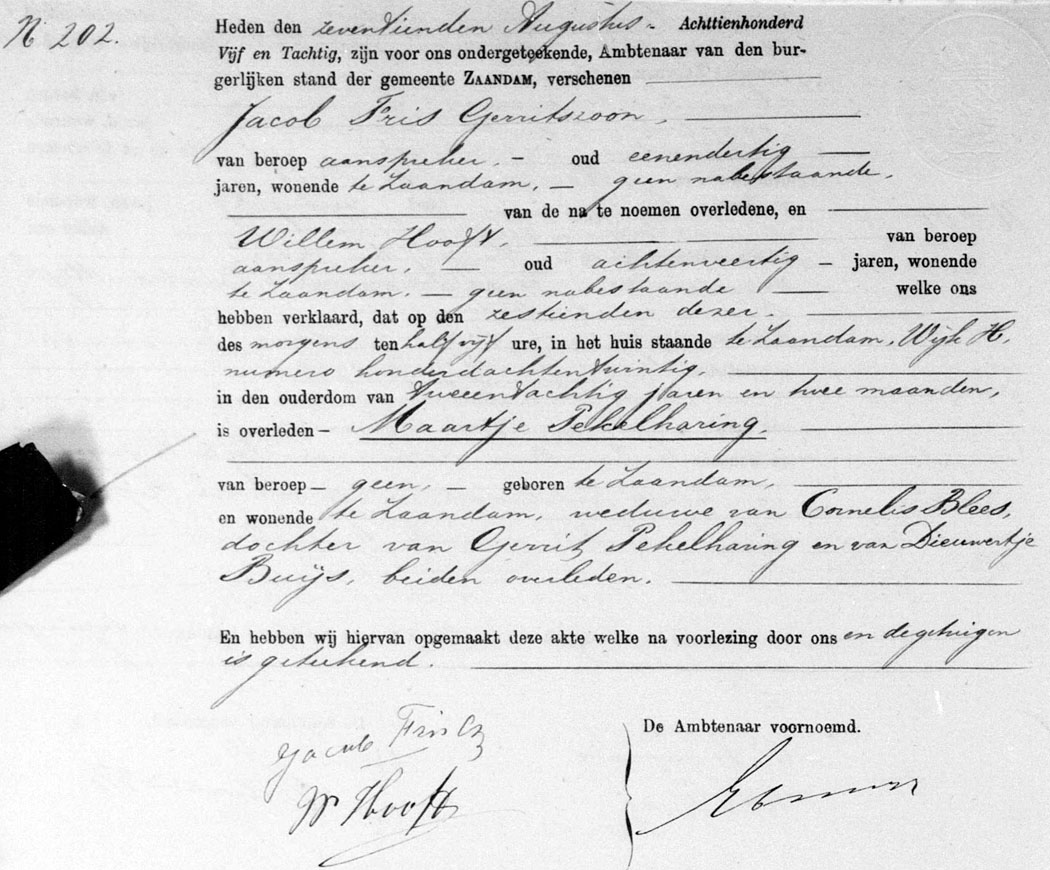 N 202.
Heden den zeventienden Augustus - Achttienhonderd
Vijf en Tachtig, zijn voor ons ondergeteekende, Ambtenaar van den bur-
gerlijken stand der gemeente ZAANDAM, verschenen
Jacob Fris Gerritszoon.
van beroep aanspreker. - oud eenendertig
jaren, wonende te Zaandam. - geen nabestaande.
van de na te noemen overledene, en
Willem Hooft. van beroep
aanspreker. - oud achtenveertig - jaren, wonende
te Zaandam. - geen nabestaande welke ons
hebben verklaard, dat op den zestienden dezer.
des morgens ten half vijf ure, in het huis staande te Zaandam. Wijk H.
numero honderdachtentwintig.
in den ouderdom van tweeentachtig jaren en twee maanden,
is overleden - Maartje Pekelharing.
van beroep - geen. - geboren te Zaandam,
en wonende te Zaandam, weduwe van Cornelis Blees,
dochter van Gerrit Pekelharing en van Dieuwertje
Buijs, beiden overleden.
En hebben wij hiervan opgemaakt deze akte welke na voorlezing door ons en de getuigen
is geteekend.
De Ambtenaar voornoemd.
Jacob Fris Gz
W Hooft